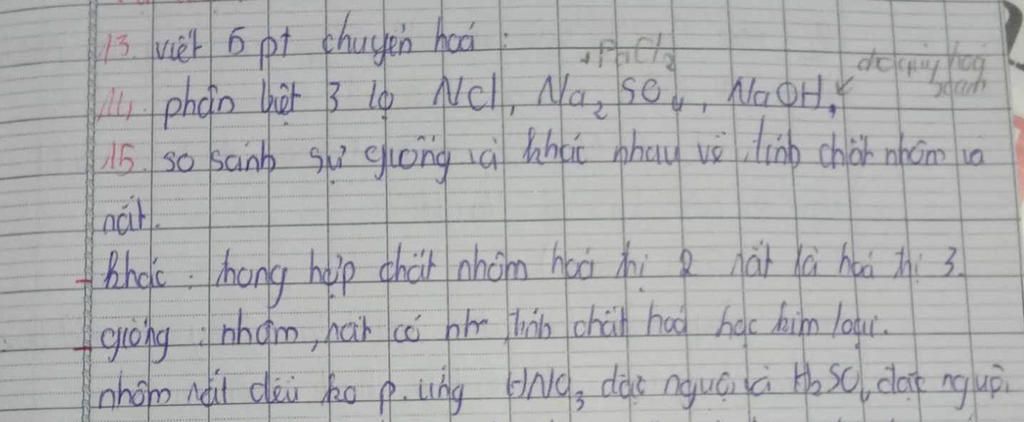 13. viết 5 pt chuyển hoá :
+ BaCl2
14. phân biệt 3 lọ NCl, Na2 SO4, NaOH,
15. so sánh sự giống và khác nhau về tính chất nhôm và
nát.
- khác : trong hợp chất nhôm hoá thị 2 nát là hoá thị 3.
- giống : nhôm, nát có tính chất hoá học kim loại.
nhôm nát đều ko p. ứng HNO3 đặc nguội và H2SO4 đặc nguội.